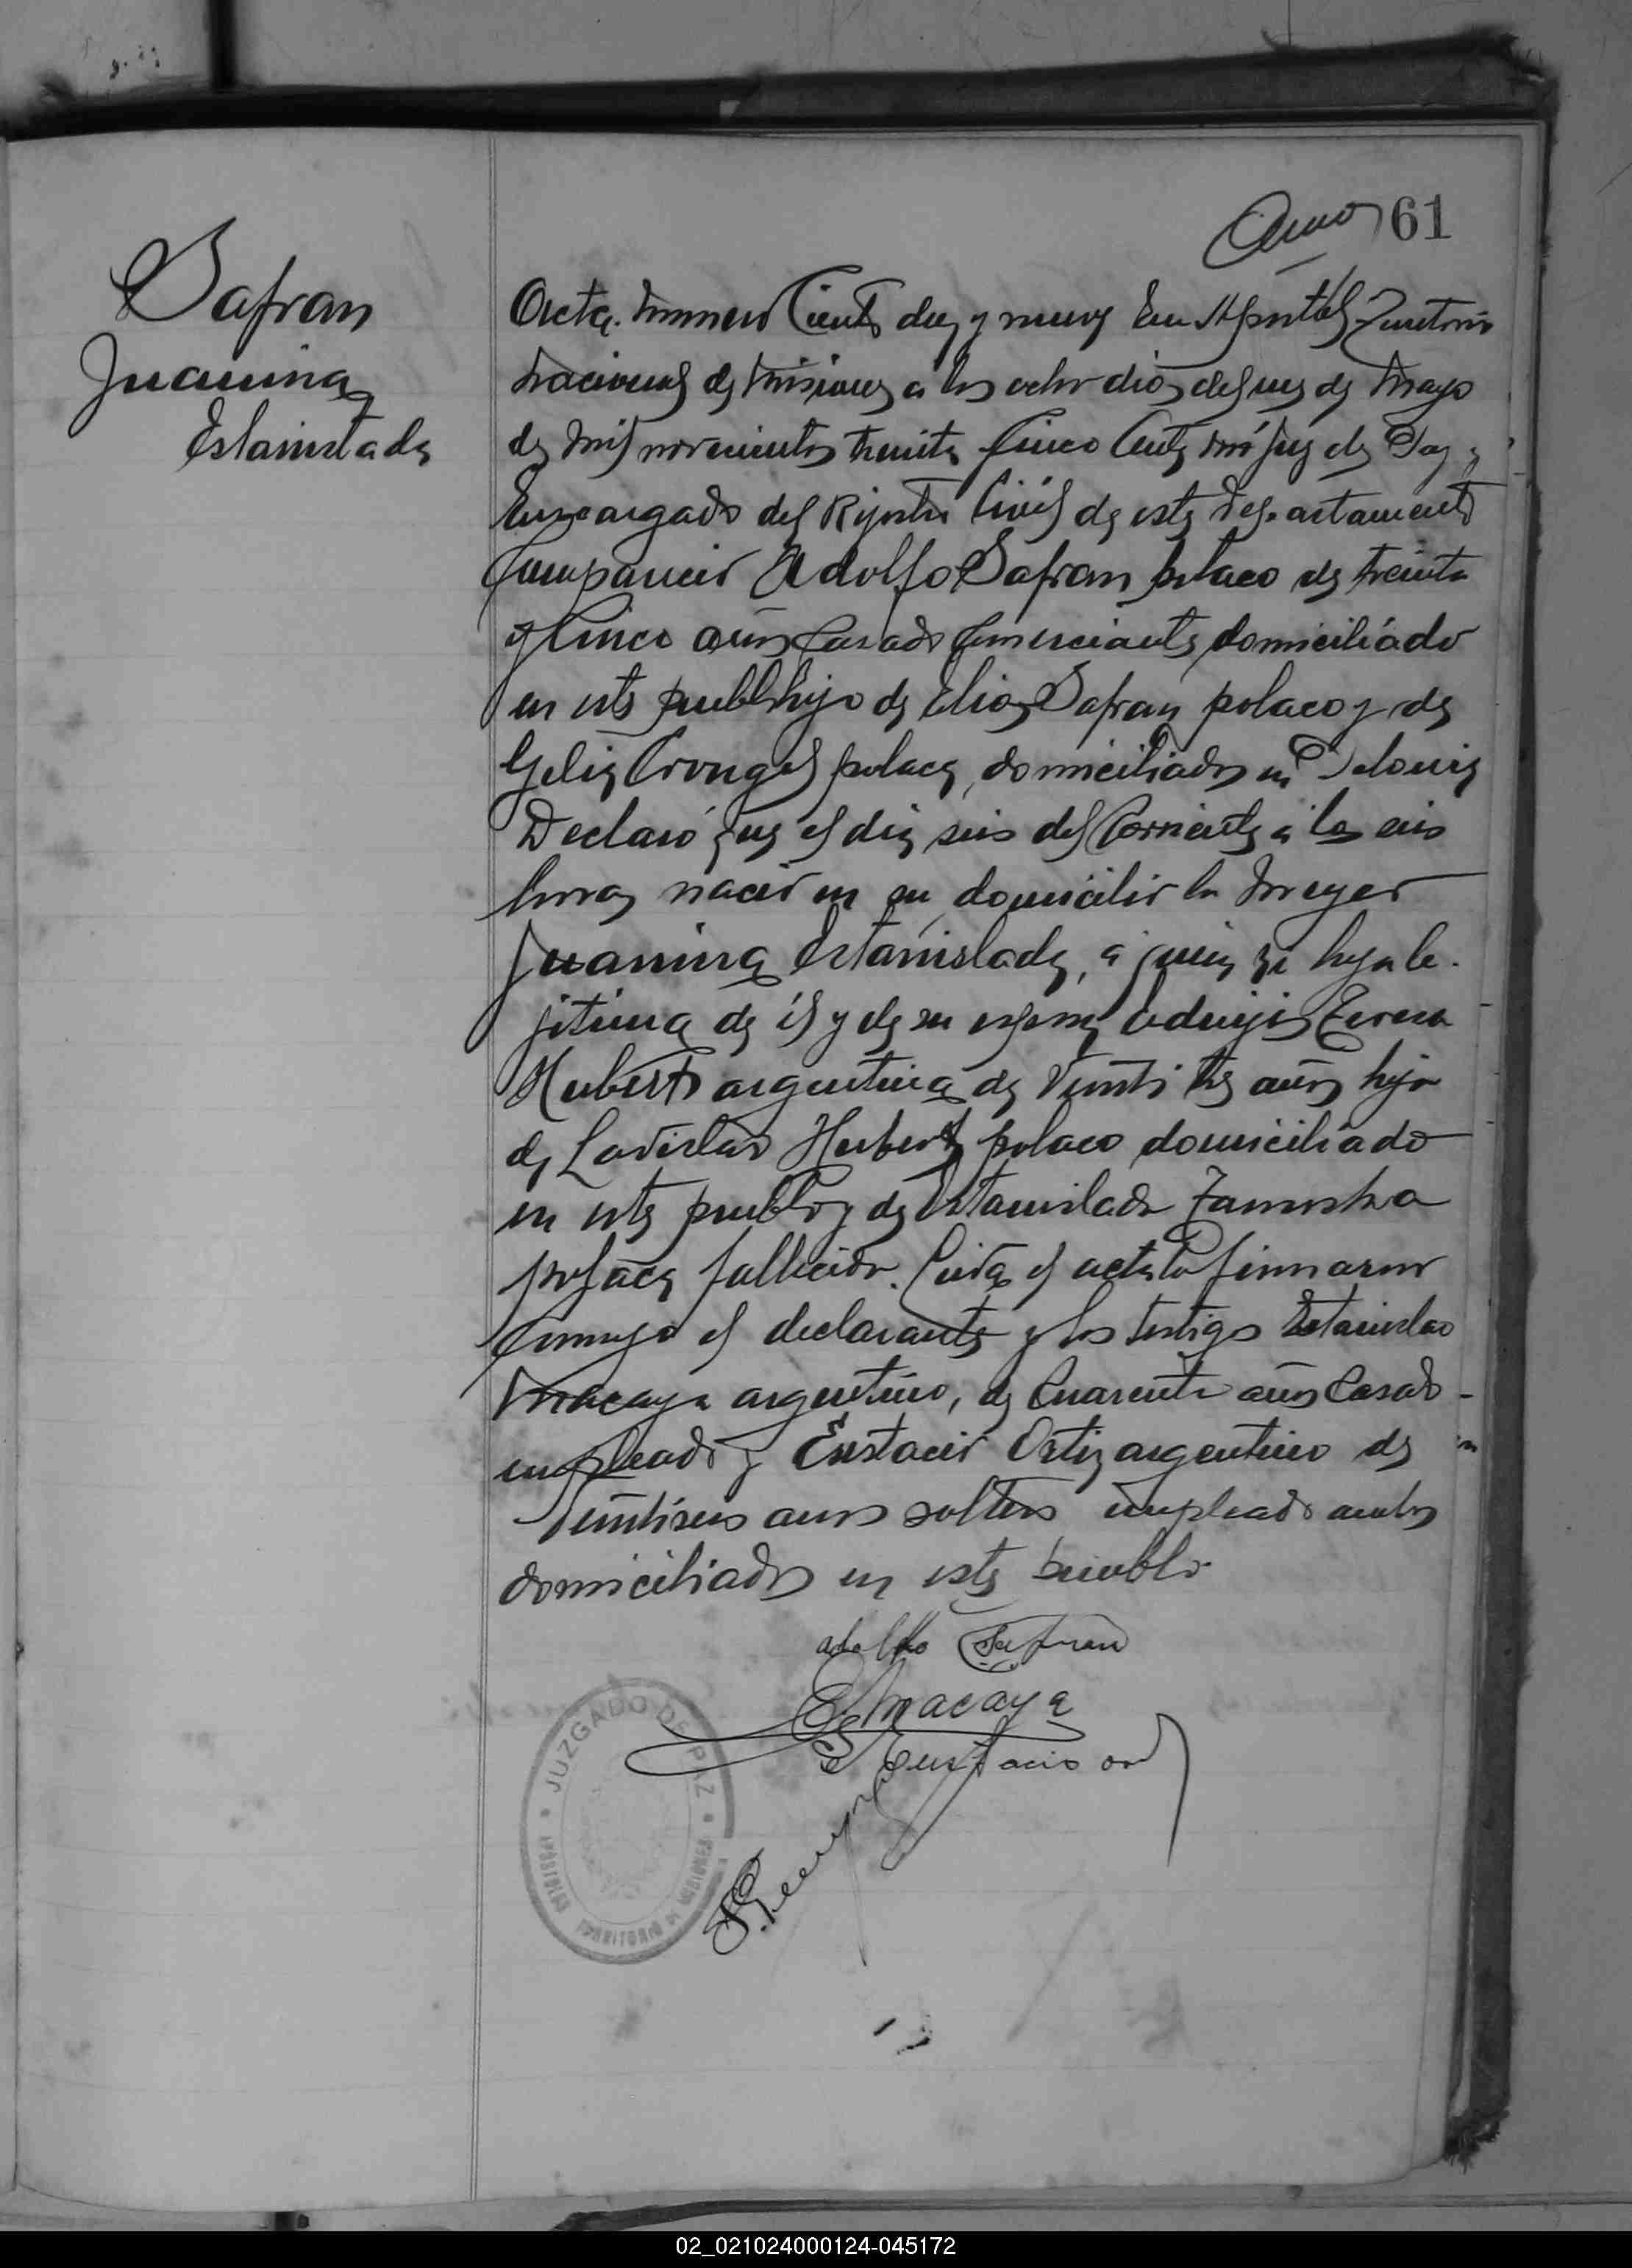 61
Safran
Juanina
Estanislada
Acta número Ciento diez y nueve En Apóstoles Territorio
Nacional de Misiones a los ocho dias del mes de Mayo
de Mil novecientos treinta Cinco Ante mi Juez de Paz y
Encargado del Rijistro Civil de este Departamento
Compareció Adolfo Safran polaco de treinta
y Cinco años Casado Comerciante domiciliado
en este pueblo hijo de Elias Safran polaco y de
polaca, domiciliados en Polonia
Declaró que el dia seis del Corriente a las seis
horas nació en su domicilio la Mujer
Juanina Estanislada, a quien hija le-
jitima de él y de su esposa Eduvijis Teresa
Hubert argentina de Veinti tres años hija
de Ladislao Hubert polaco domiciliado
en este pueblo y de Estanislada
polaca fallecida. Leida el acta la firmaron
Conmigo el declarante y los testigos Estanislao
Macaya argentino, de Cuarenta años Casado
empleado y Eustacio Ortiz argentino de
Veintiseis anos soltero empleado ambos
domiciliados en este pueblo
adolfo Safran
E Macaya
Eustacio
JUZGADO DE PAZ
APOSTOLES
TERRITORIO DE MISIONES
02_021024000124-045172